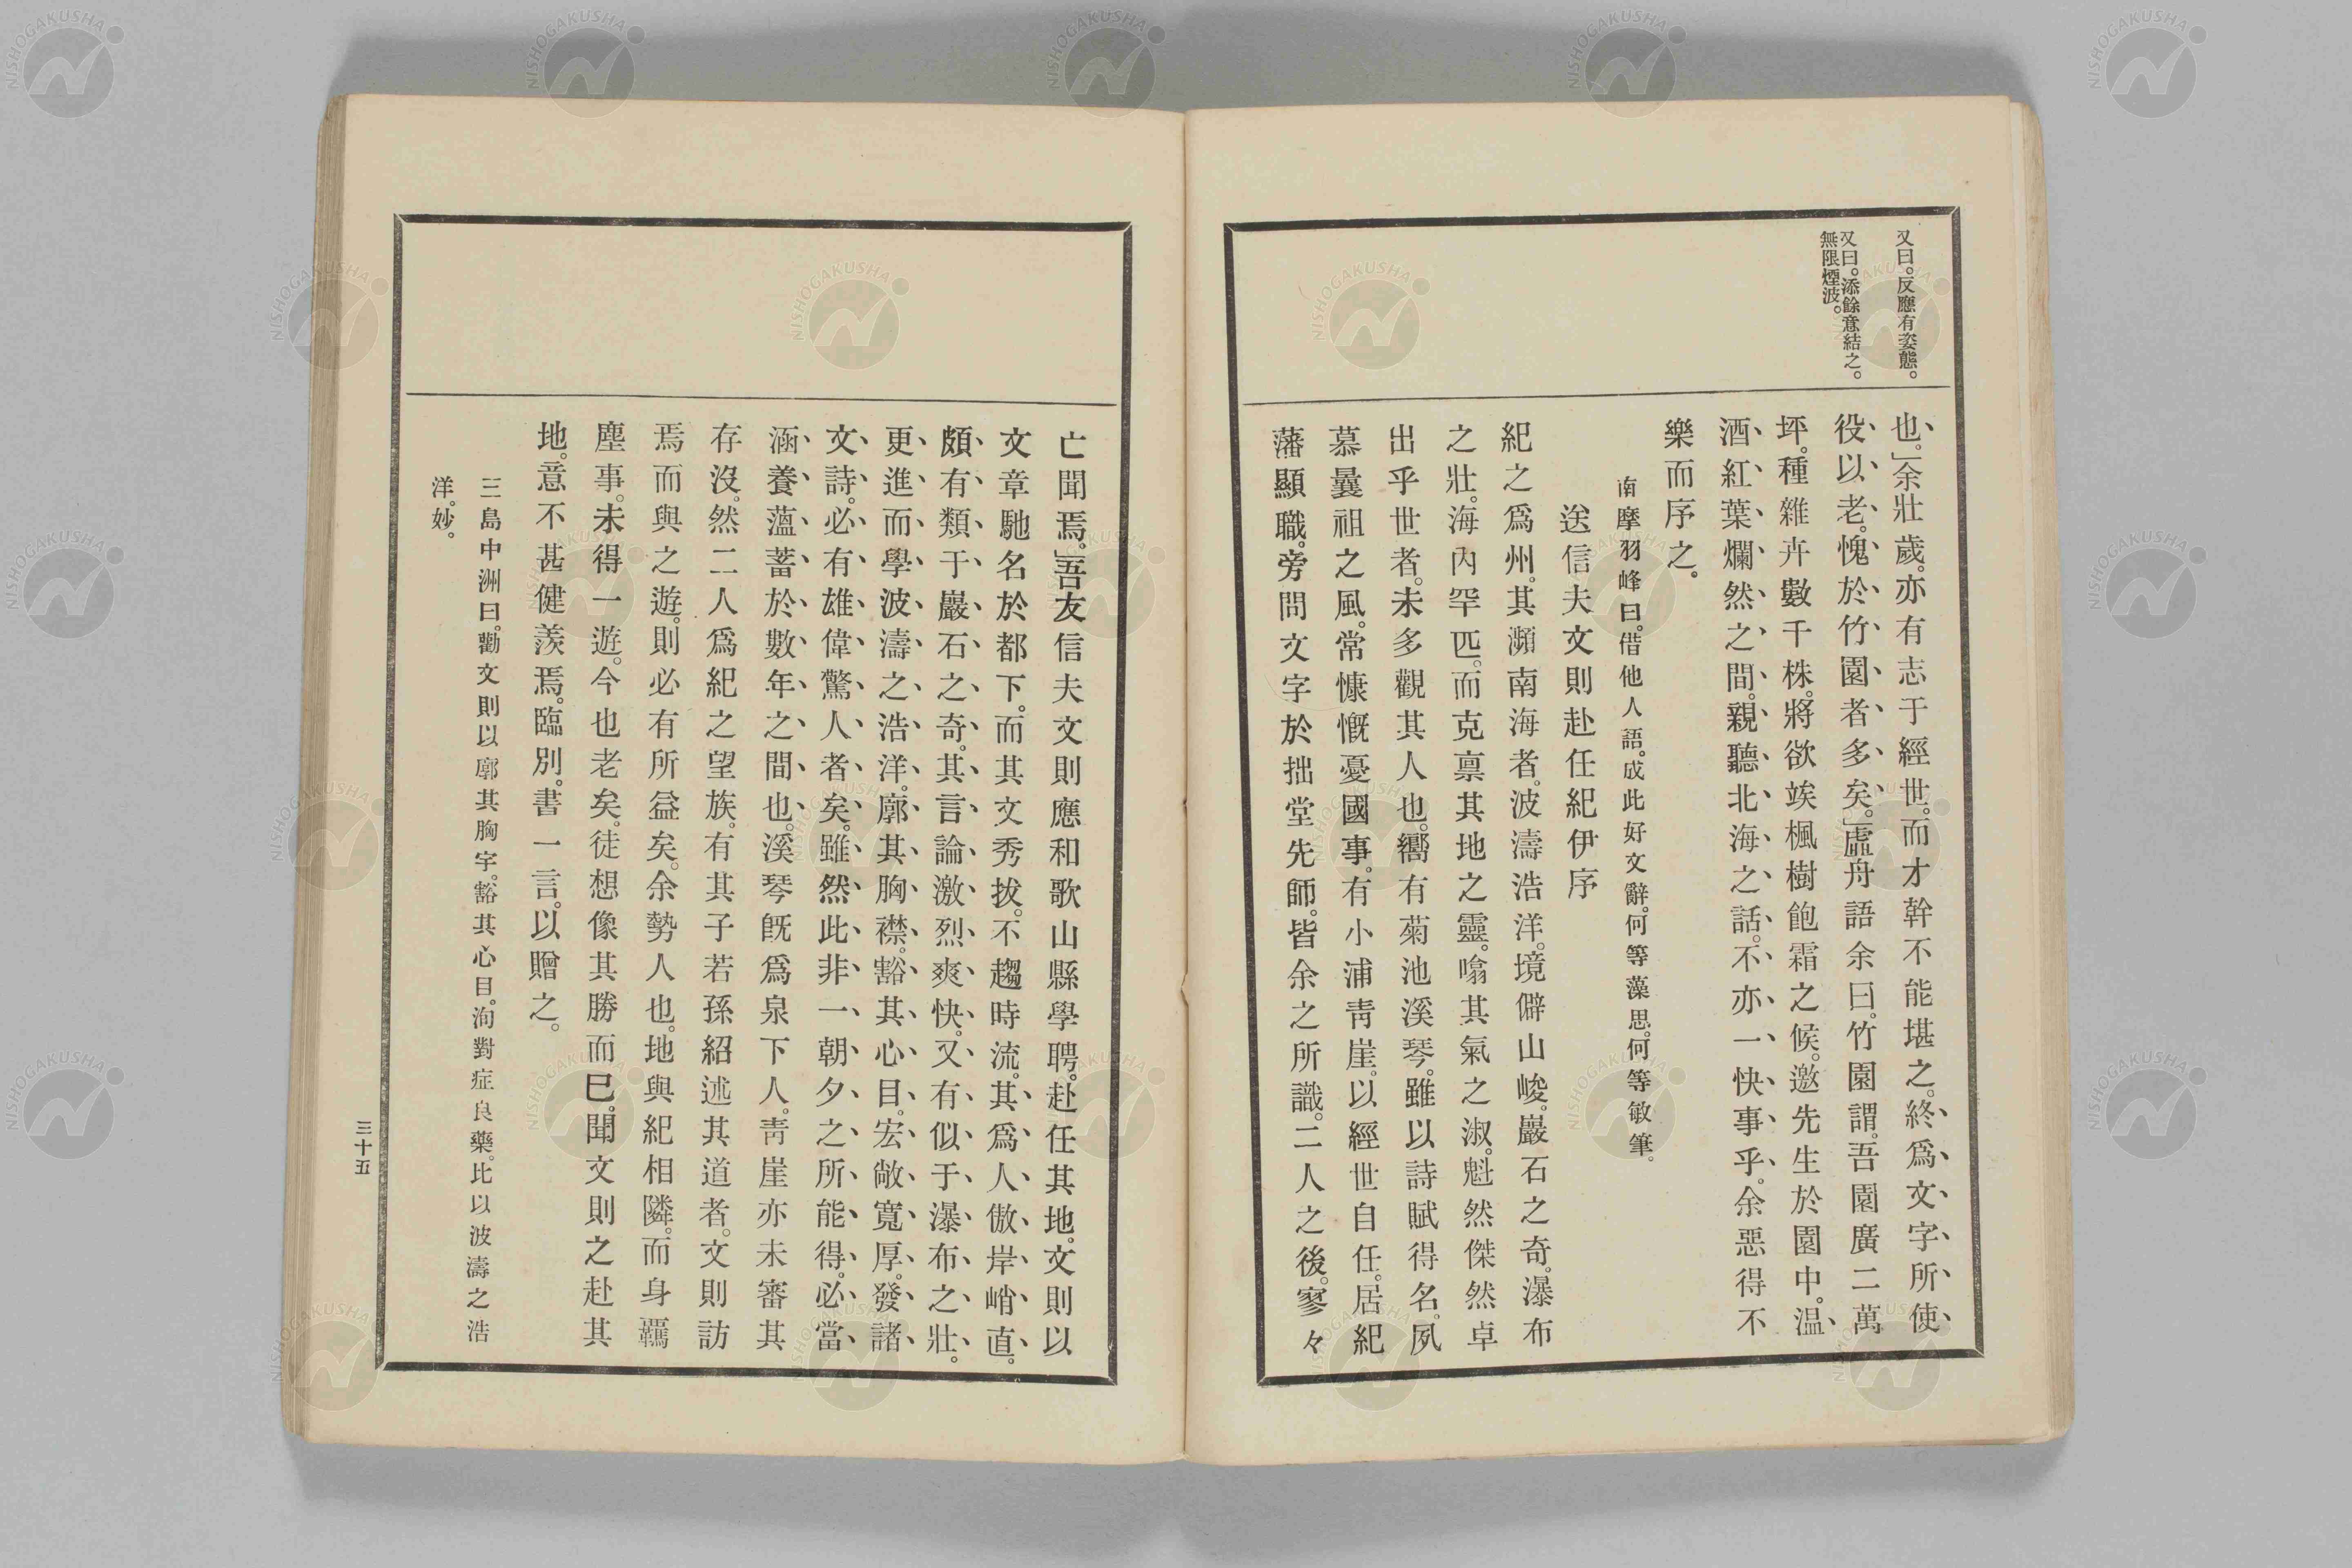 又曰。反應有姿態。
又曰。添餘意結之。
無限煙波。
也。」余壯歲。亦有志于經世。而才幹不能堪之。終爲文字所使
役以老。愧於竹園者多矣。」虛舟語余曰。竹園謂。吾園廣二萬
坪。種雜卉數千株。將欲竢楓樹飽霜之候。邀先生於園中。温
酒紅葉爛然之間。親聽北海之話。不亦一快事乎。余惡得不
樂而序之。
南摩羽峰曰。借他人語。成此好文辭。何等藻思。何等敏筆。
送信夫文則赴任紀伊序
紀之爲州。其瀕南海者。波濤浩洋。境僻山峻。巖石之奇。瀑布
之壯。海內罕匹。而克禀其地之靈。噏其氣之淑。魁然傑然卓
出乎世者。未多觀其人也。嚮有菊池溪琴。雖以詩賦得名。夙
慕曩祖之風。常慷慨憂國事。有小浦靑崖。以經世自任。居紀
藩顯職。旁問文字於拙堂先師。皆余之所識。二人之後。寥々
亡聞焉。」吾友信夫文則應和歌山縣學聘。赴任其地。文則以
文章馳名於都下。而其文秀拔。不趨時流。其爲人傲岸峭直。
頗有類于巖石之奇。其言論激烈爽快。又有似于瀑布之壯。
更進而學波濤之浩洋。廓其胸襟。豁其心目。宏敞寬厚。發諸
文詩。必有雄偉驚人者矣。雖然此非一朝夕之所能得。必當
涵養薀蓄於數年之間也。溪琴既爲泉下人。靑崖亦未審其
存沒。然二人爲紀之望族。有其子若孫紹述其道者。文則訪
焉而與之遊。則必有所益矣。余勢人也。地與紀相隣。而身羈
塵事。未得一遊。今也老矣。徒想像其勝而已。聞文則之赴其
地。意不甚健羨焉。臨別。書一言。以贈之。
三島中洲曰。勸文則以廓其胸宇。豁其心目。洵對症良藥。比以波濤之浩
洋。妙。
三十五
NISHOGAKUSHA